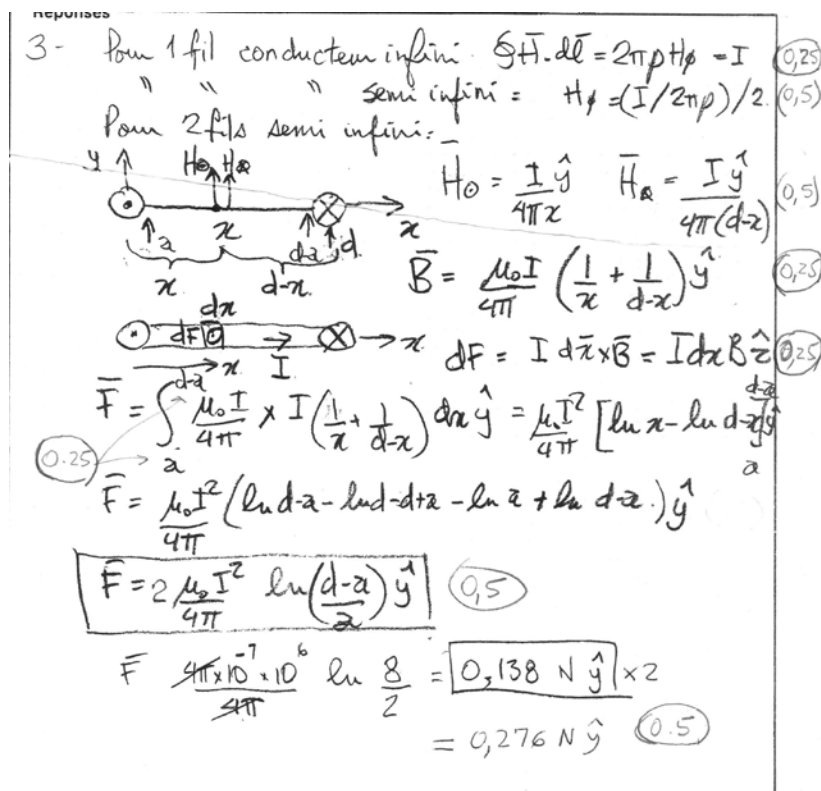 Réponses
3- Pour 1 fil conducteur infini ∮H̄·dl̄ = 2πρHϕ = I (0,25)
" " " semi infini = Hϕ = (I/2πρ)/2 (0,5)
Pour 2 fils semi infini:
y H⊙ H⊗
H̄⊙ = I ŷ / 4πx H̄⊗ = I ŷ / 4π(d-x) (0,5)
a x d-a d x
x d-x
B̄ = μ₀I/4π (1/x + 1/(d-x)) ŷ (0,25)
dx
dF I x
x
dF = I dx̄ × B̄ = I dx B ẑ (0,25)
F̄ = ∫ₐ^(d-a) μ₀I/4π × I (1/x + 1/(d-x)) dx ŷ = μ₀I²/4π [ln x - ln d-x]ₐ^(d-a) ŷ
(0.25)
F̄ = μ₀I²/4π (ln d-a - ln d-d+a - ln a + ln d-a.) ŷ
F̄ = 2 μ₀I²/4π ln((d-a)/a) ŷ (0,5)
F̄ 4π×10⁻⁷×10⁶/4π ln 8/2 = 0,138 N ŷ ×2
= 0,276 N ŷ (0.5)